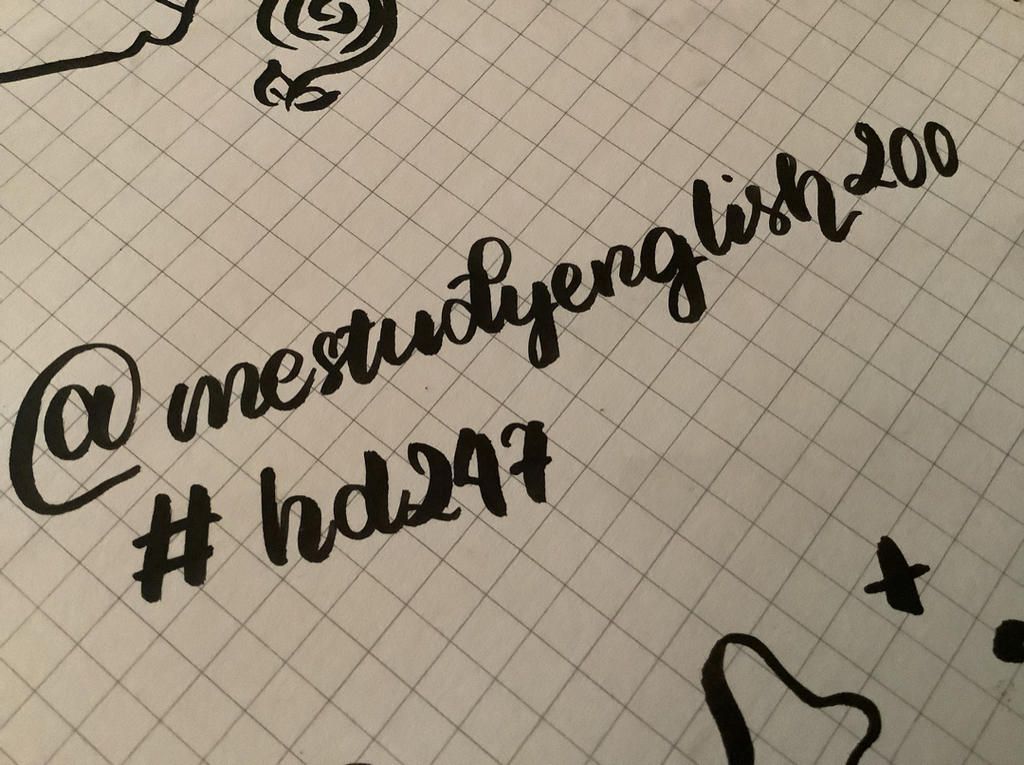 @mestudyenglish200
#hd247